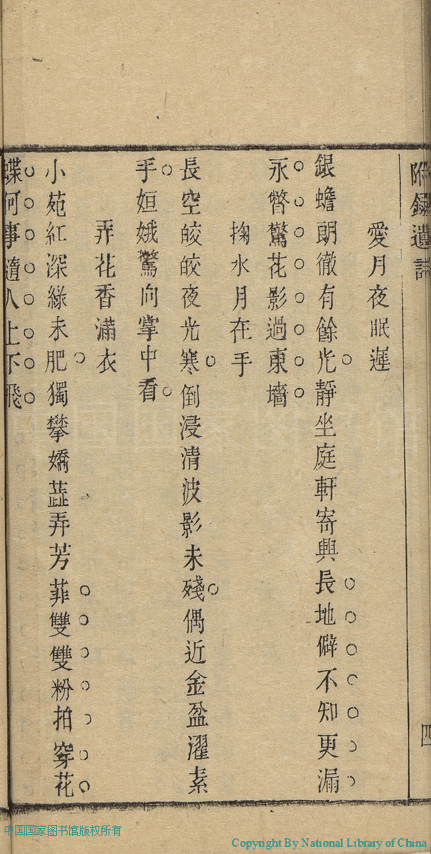 附錄遺詩
四
愛月夜眠遲
銀蟾朗徹有餘光靜坐庭軒寄興長地僻不知更漏
永瞥驚花影過東墻
掬水月在手
長空皎皎夜光寒倒浸清波影未殘偶近金盈濯素
手姮娥驚向掌中看
弄花香滿衣
小苑紅深綠未肥獨攀嬌蕋弄芳菲雙雙粉拍穿花
蝶何事隨人上下飛
中国国家图书馆版权所有
Copyright By National Library of China